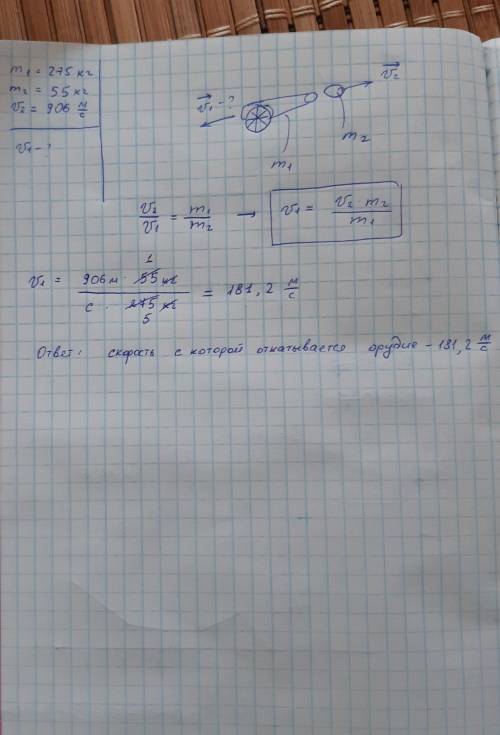 m₁ = 275 кг
m₂ = 55 кг
v₂ = 906 м/с
v₁ - ?
v₁ - ?
v₂
m₁
m₂
v₂/v₁ = m₁/m₂ → v₁ = v₂ · m₂/m₁
v₁ = 906 м · 55 кг / с · 275 кг = 181,2 м/с
1
5
Ответ: скорость с которой откатывается орудие - 181,2 м/с